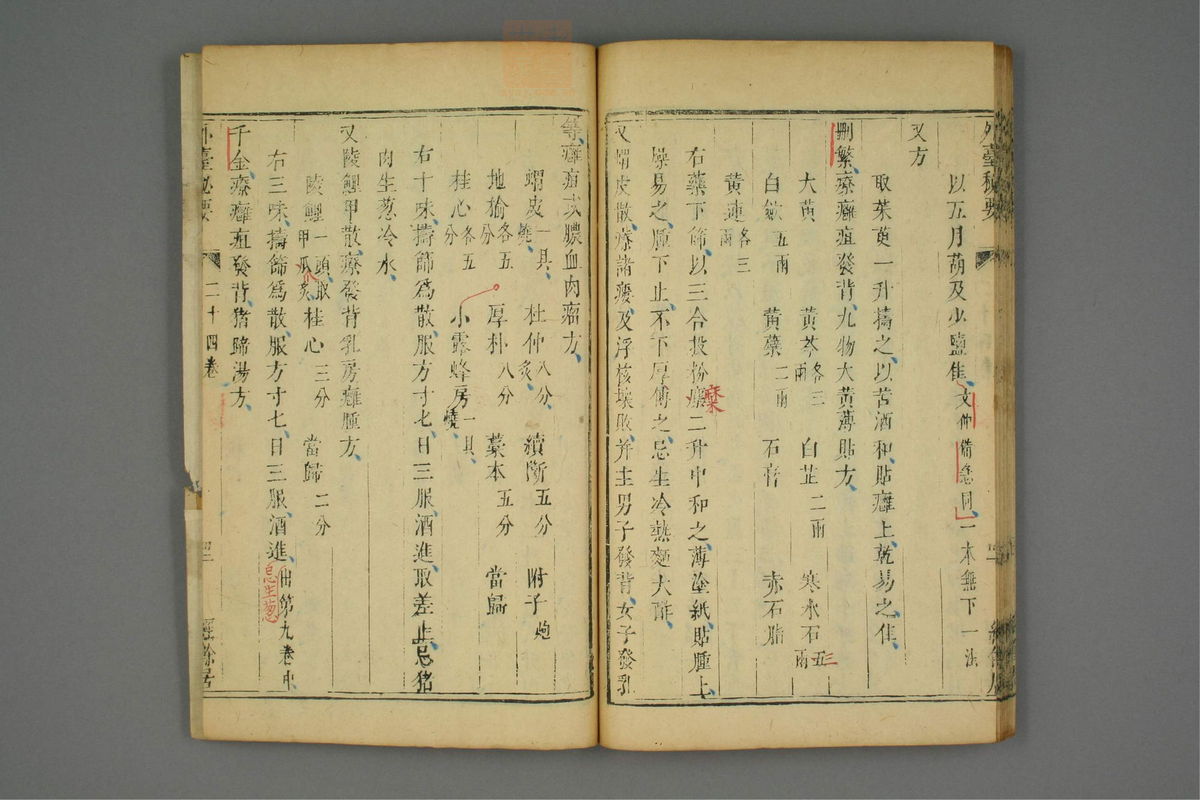 外臺秘要
以五月葫及少鹽佳文仲備急同一本無下一法
又方
取茱萸一升擣之以苦酒和貼癰上乾易之佳
刪繁療癰疽發背九物大黃薄貼方
大黃 黃芩各三兩 白芷二兩 寒水石五兩 三
白斂五兩 黃蘗二兩 石膏 赤石脂
黃連各三兩
右藥下篩以三合投粉 二升中和之薄塗紙貼腫上
糜
燥易之腫下止不下厚傅之忌生冷熱麵大酢
又蝟皮散療諸瘻及浮核壞敗并主男子發背女子發乳
等癰疽或膿血肉瘤方
蝟皮一具燒 杜仲八分炙 續斷五分 附子炮
地榆各五分 厚朴八分 藁本五分 當歸
桂心各五分 小露蜂房一具燒
右十味擣篩為散服方寸匕日三服酒進取差止忌猪
肉生葱冷水
又陵鯉甲散療發背乳房癰腫方
陵鯉甲一頭取爪炙 桂心三分 當歸二分
右三味擣篩為散服方寸匕日三服酒進出第九卷中
忌生葱
千金療癰疽發背猪蹄湯方
外臺秘要 二十四卷 經餘居